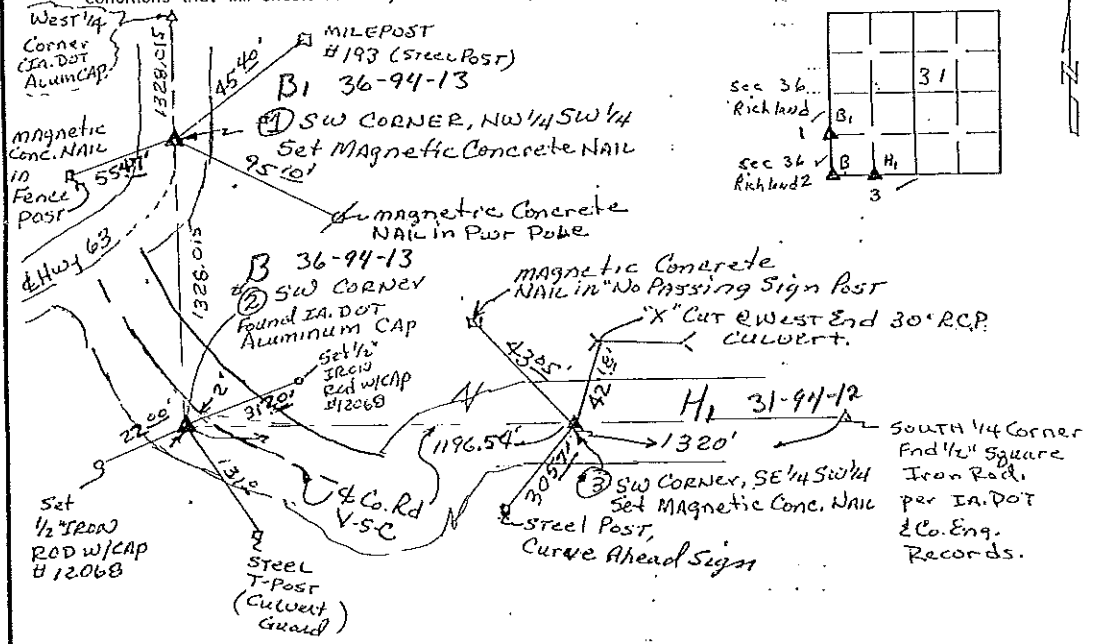 West 1/4
Corner
IA. DOT
Alum CAP.
1328.015
45 40'
MILEPOST
#193 (Steel Post)
B1 36-94-13
① SW CORNER, NW 1/4 SW 1/4
Set MAgnetic Concrete NAIL
magnetic
Conc. NAIL
in
Fence
Post
95 10'
magnetic Concrete
NAIL in Pwr Pole
1328.015
¢ Hwy 63
B 36-94-13
② SW CORNER
Found IA. DOT
ALUMINUM CAP
Set 1/2"
IRON
Rod w/CAP
#12068
2200'
3120'
Set
1/2" IRON
ROD w/CAP
#12068
STEEL
T-POST
(Culvert
Guard)
¢ Co. Rd
V-5-C
1196.54'
MAgnetic Concrete
NAIL in "No PAssing Sign Post
"X" CUT @ West End 30" R.C.P.
CULVERT.
4305'
H1 31-94-12
1320'
③ SW CORNER, SE 1/4 SW 1/4
Set MAGNETIC Conc. NAIL
Steel Post,
Curve Ahead Sign
SOUTH 1/4 Corner
Fnd 1/2" Square
Iron Rod,
per IA. DOT
& Co. Eng.
Records.
31
sec 36
Richland
1
B1
sec 36
Richland 2
B
H1
3
N